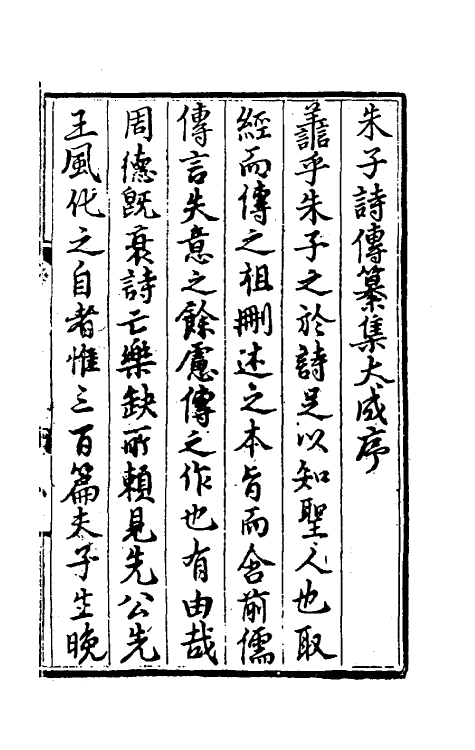 朱子詩傳纂集大成序
譱乎朱子之於詩足以知聖人也取
經而傳之祖刪述之本旨而舍前儒
傳言失意之餘慮傳之作也有由哉
周德既衰詩亡樂缺所賴見先公先
王風化之自者惟三百篇夫子生晚